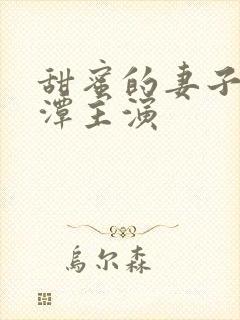 甜蜜的妻子
潭主演
烏尔森